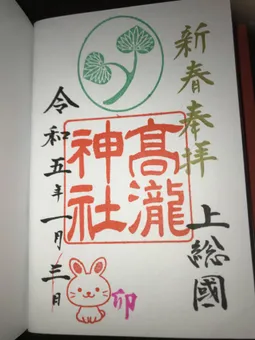 新春奉拝
上総國
高瀧神社
令和五年一月三日
卯